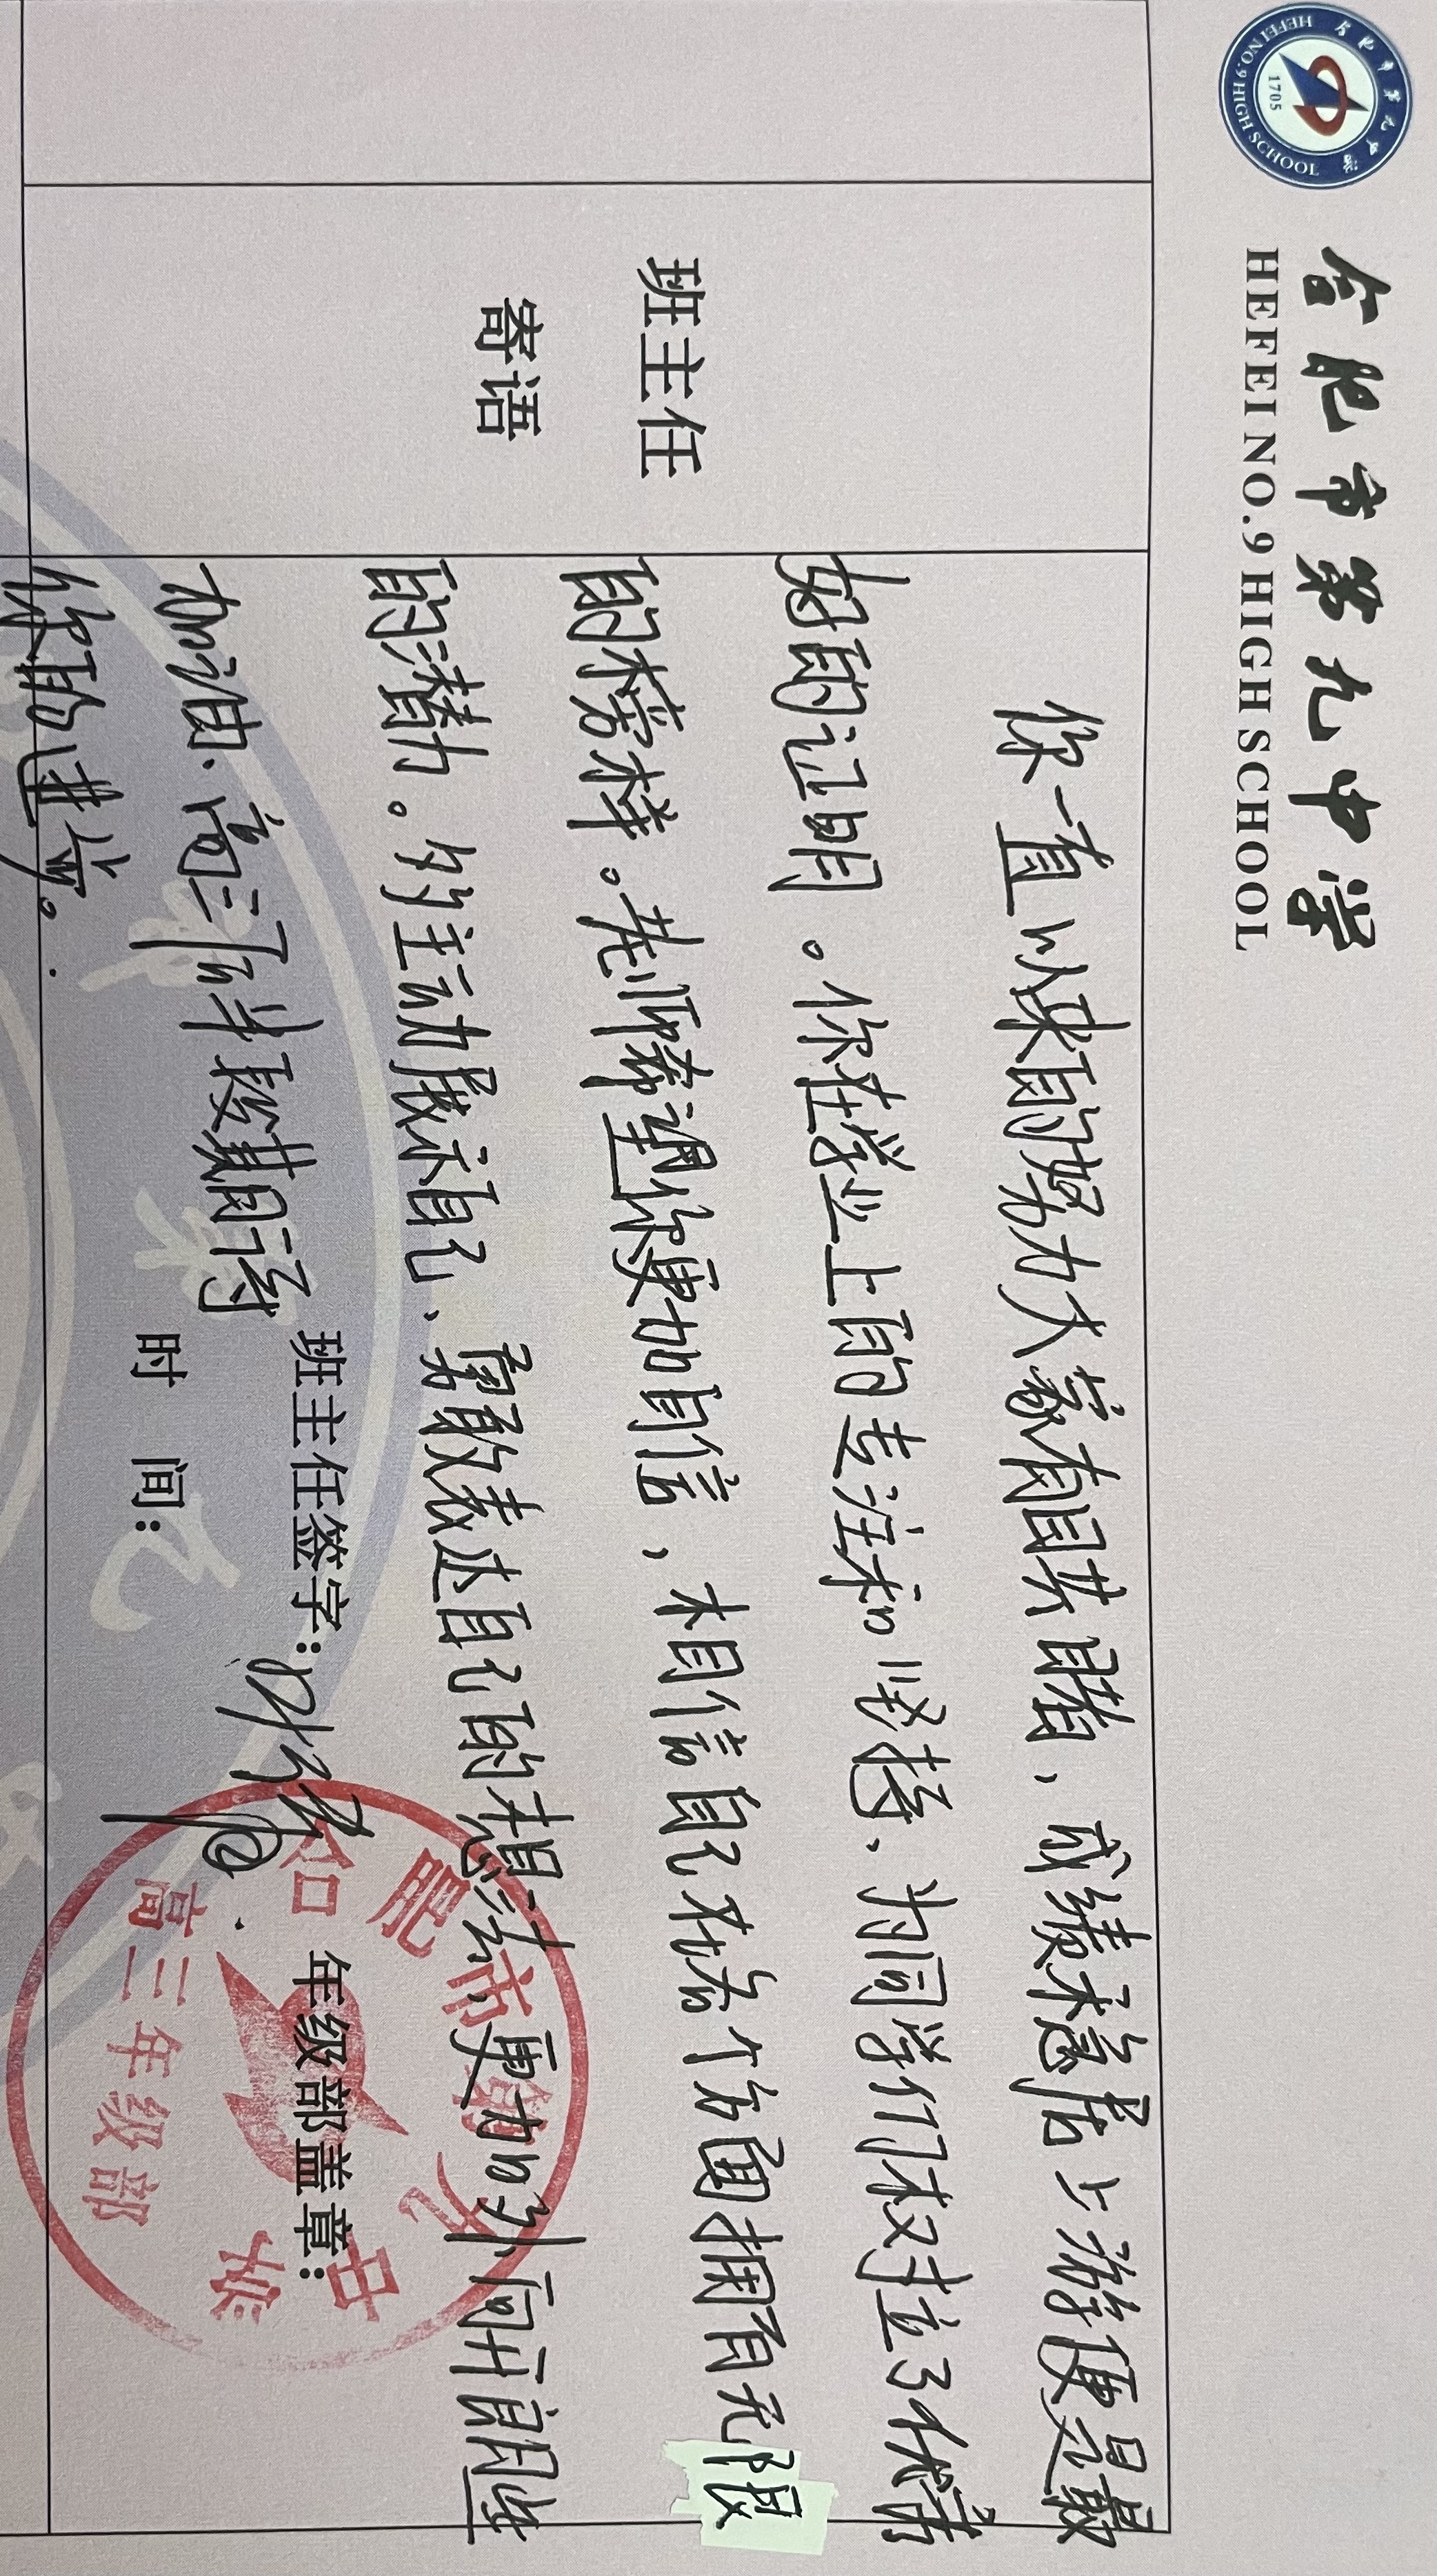 合肥市第九中学
HEFEI NO.9 HIGH SCHOOL
合肥市第九中学
1705
HEFEI NO.9 HIGH SCHOOL
班主任
寄语
你一直以来的努力大家有目共睹，成绩稳居上游便是最
好的证明。你在学业上的专注和坚持，为同学们树立了优秀
的榜样。老师希望你更加自信，相信自己在各个方面拥有无限
的潜力。多主动展示自己，勇敢表达自己的想法，更加外向开朗些
加油，高三后半段期待
你的进步。
班主任签字：
年级部盖章：
时 间：
合肥市第九中学
高三年级部